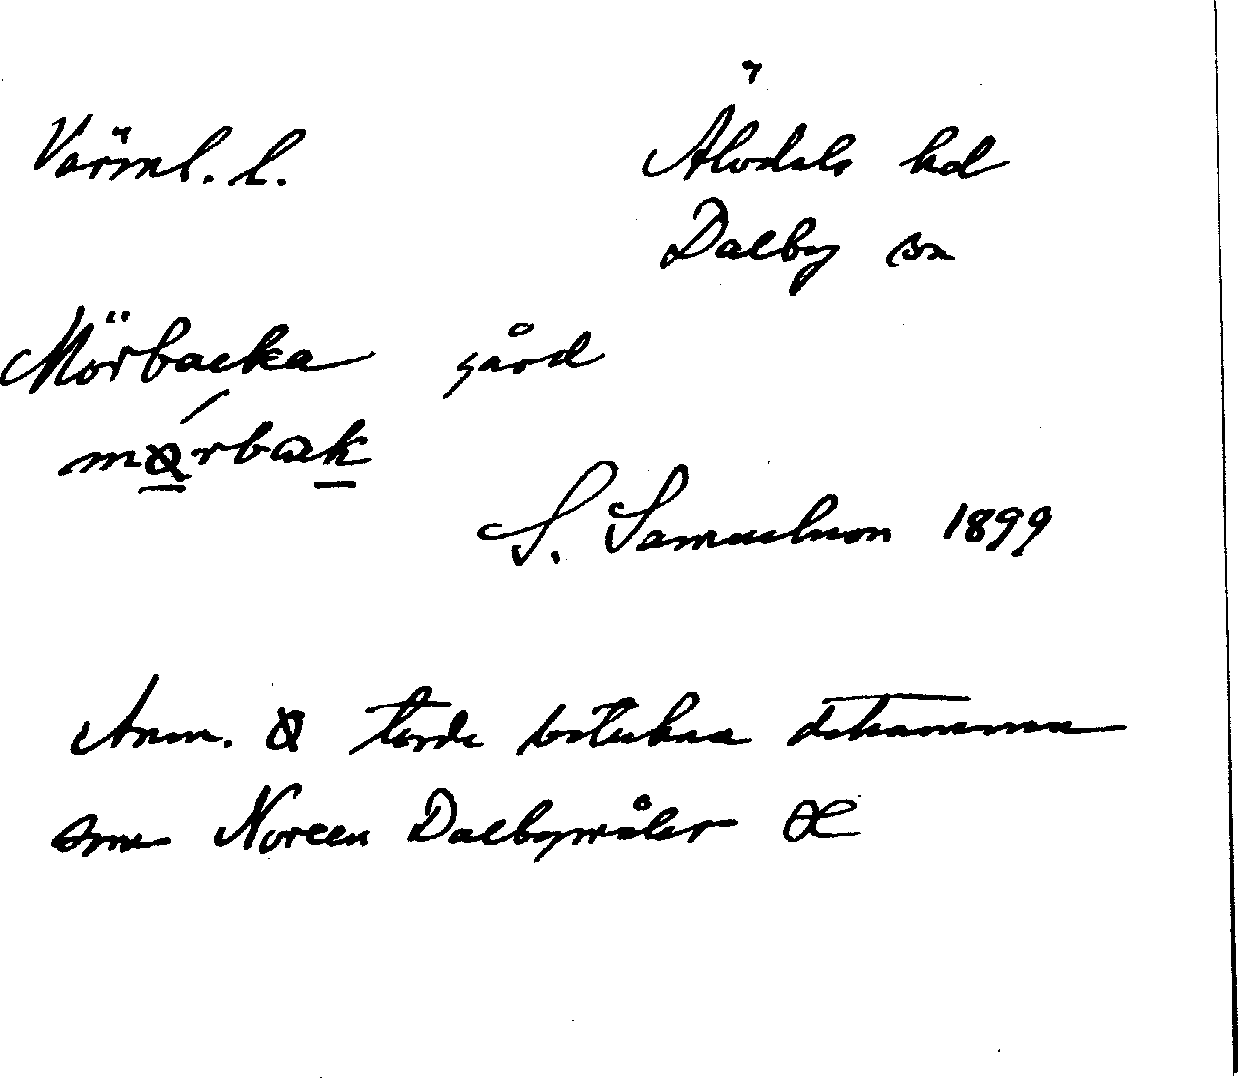 Värml. l. Älvdals hd
Dalby sn
Mörbacka gård
mørbak
S. Samuelsson 1899
Anm. ø torde beteckna detsamma
som Noreen Dalbymålet œ